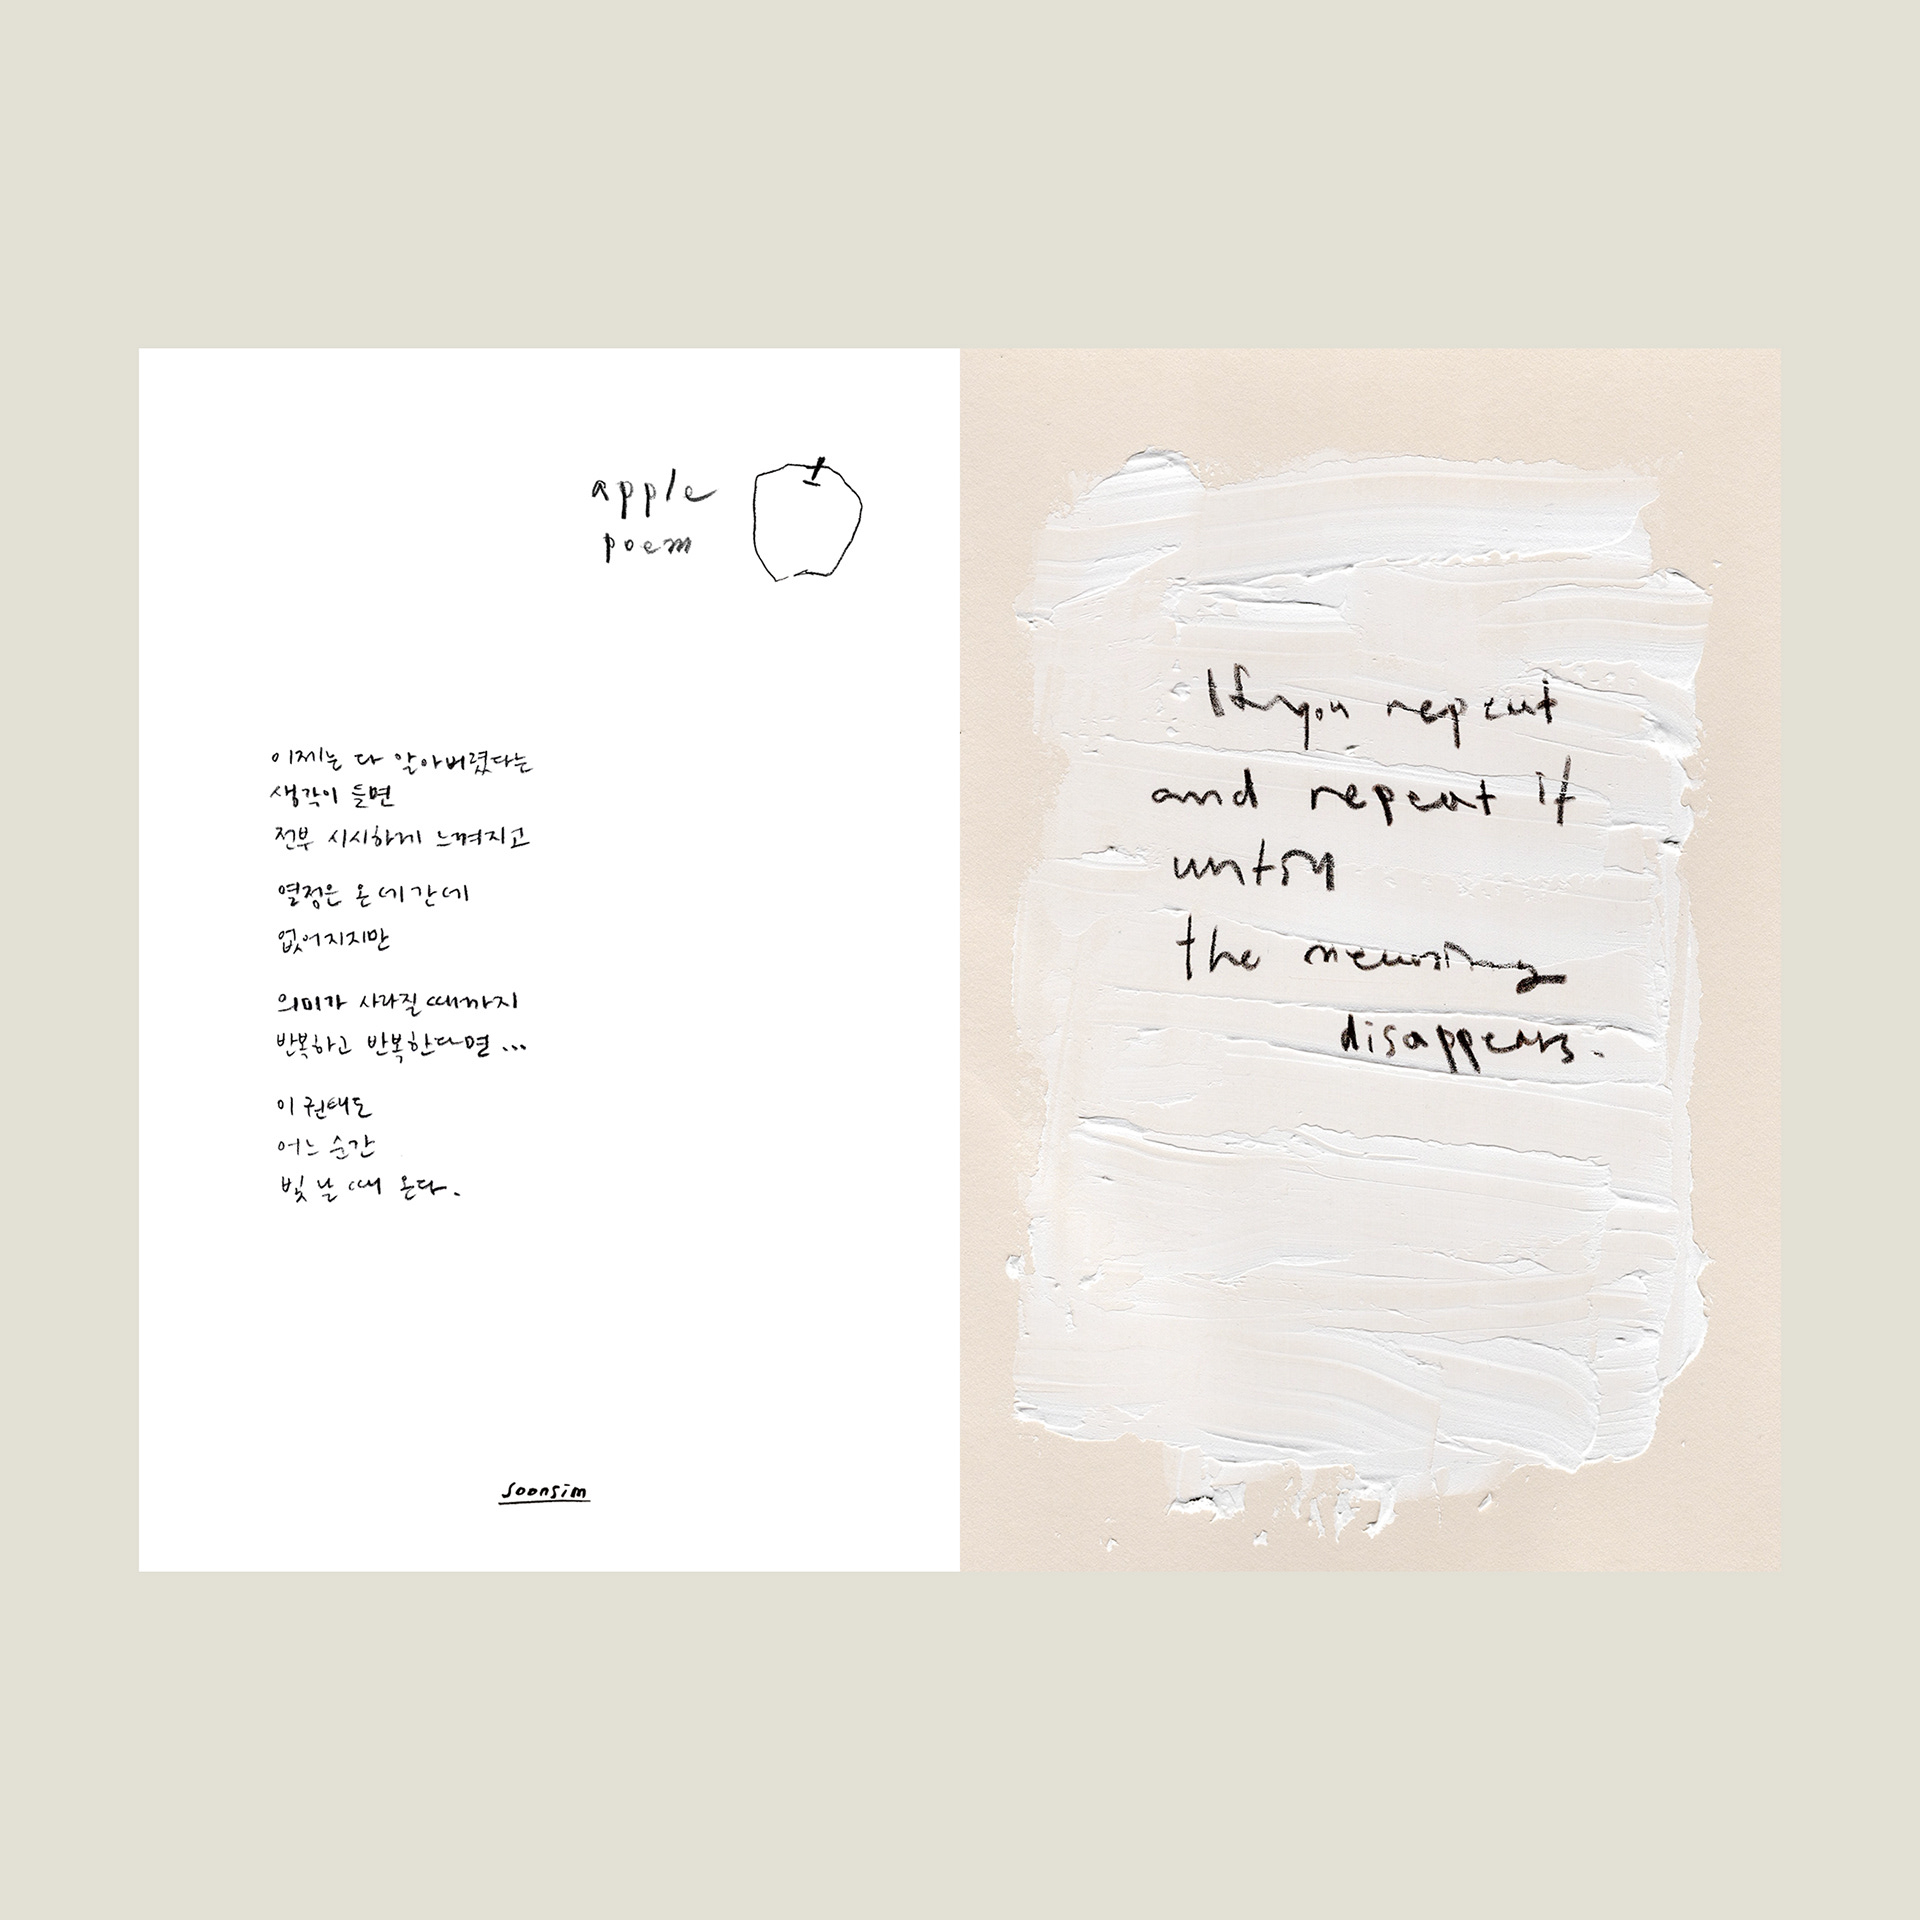 apple
poem
이제는 다 알아버렸다는
생각이 들면
전부 시시하게 느껴지고
열정은 온데간데
없어지지만
의미가 사라질 때까지
반복하고 반복한다면 ...
이 권태도
어느 순간
빛날 때 온다.
soonsim
If you repeat
and repeat it
until
the meaning
disappears.